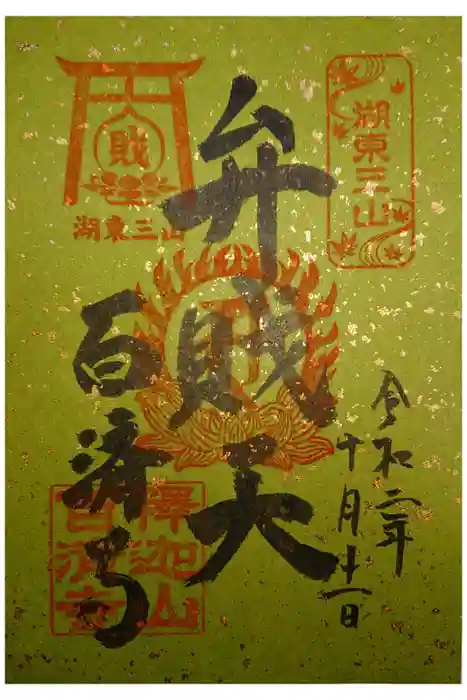 湖東三山
令和二年
十月十一日
弁賊天
賊
湖東三山
百済寺
釋迦山
百済寺